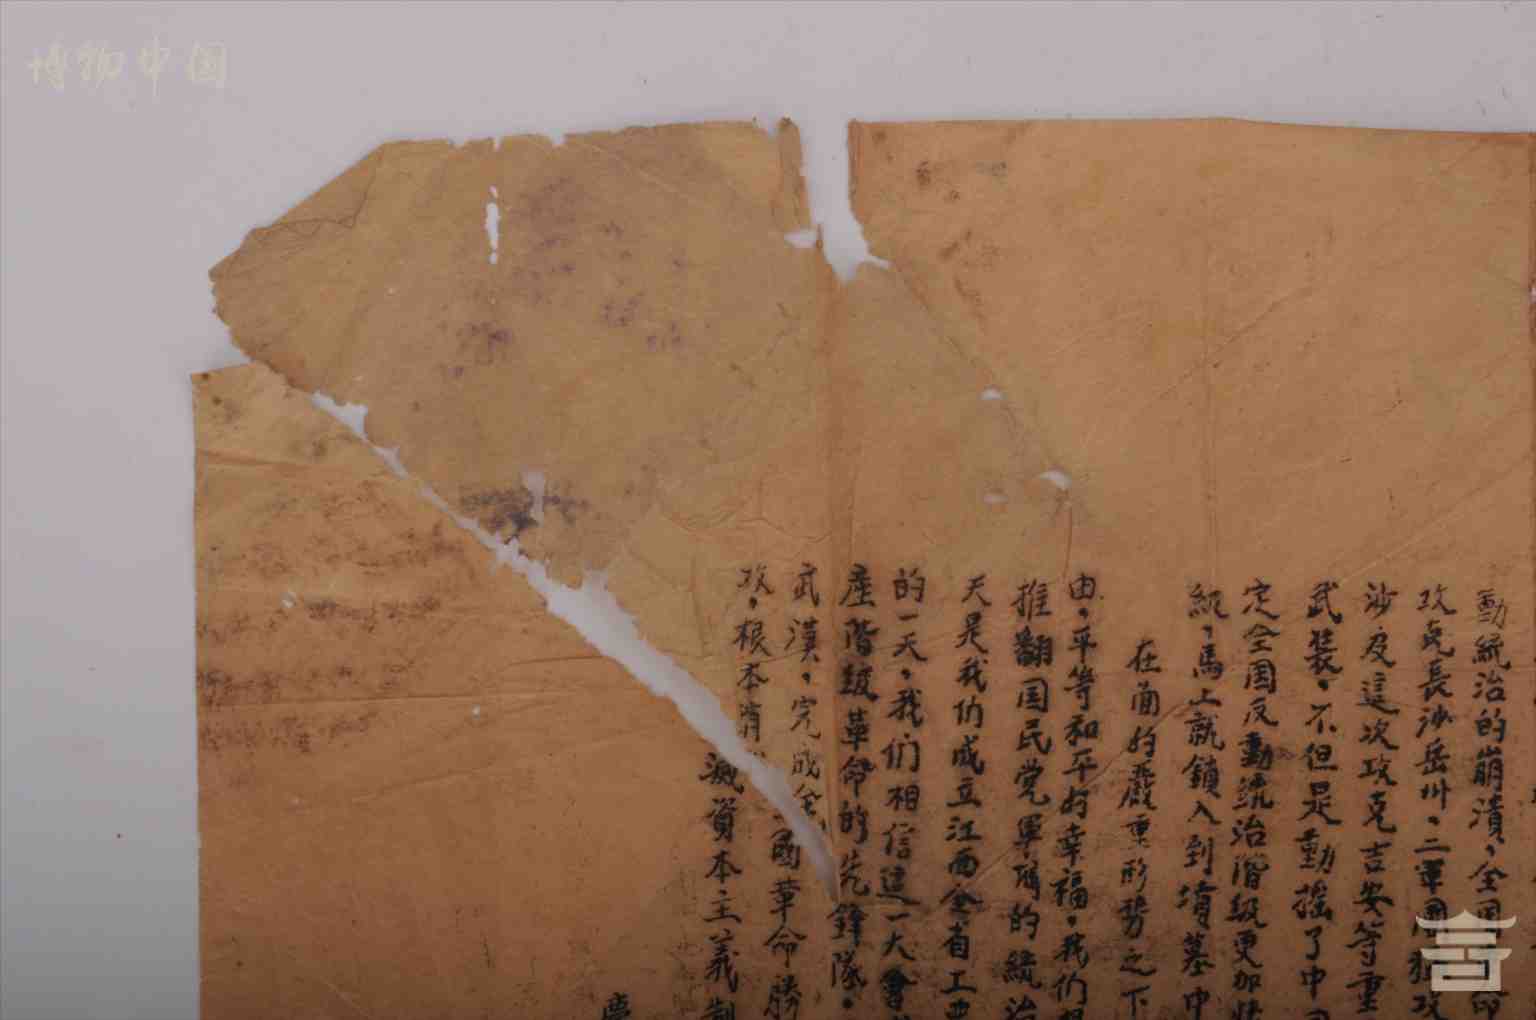 博物中国
動統治的崩潰，全国
攻克長沙岳州，二軍團
沙及這次攻克吉安等重
武裝，不但是動搖了中
定全国反動統治階級更加
統，馬上就鎖入到墳墓中
在面的嚴重形势之下
由，平等和平的幸福，我们
推翻国民党軍閥的統治
天是我们成立江西全省工
的一天，我们相信這一大會
產階級革命的先鋒隊。
武漢，完成全國革命勝
攻，根本消滅資本主義制
慶